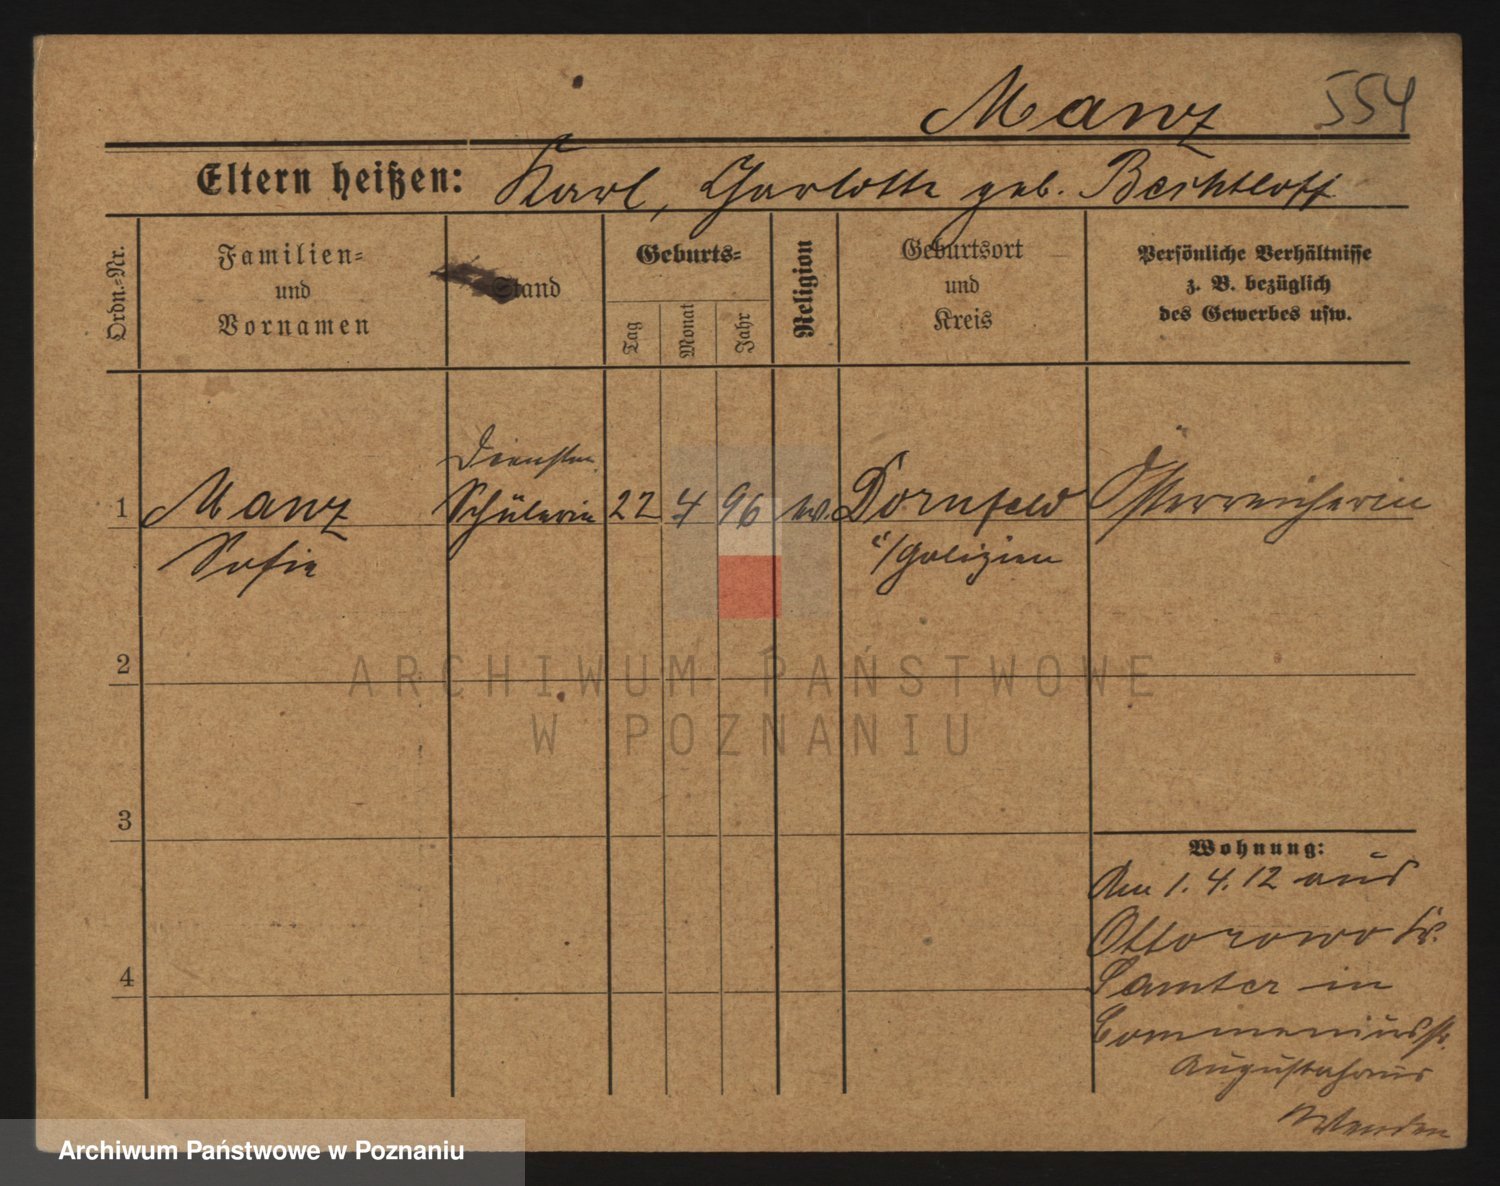 Manz 554
Eltern heißen: Karl, Charlotte geb. Bechtloff
Ordn.-Nr.
Familien-
und
Vornamen
Stand
Geburts-
Tag
Monat
Jahr
Religion
Geburtsort
und
Kreis
Persönliche Verhältnisse
z. B. bezüglich
des Gewerbes usw.
1 Manz Schülerin 22 4 96 ev. Dornfeld Österreicherin
Sofie i/Galizien
2
3
4
Wohnung:
Am 1.4.12 aus
Ottorowo Kr.
Samter in
Commeniusstr.
Augustahaus
Wenden
ARCHIWUM PAŃSTWOWE
W POZNANIU
Archiwum Państwowe w Poznaniu